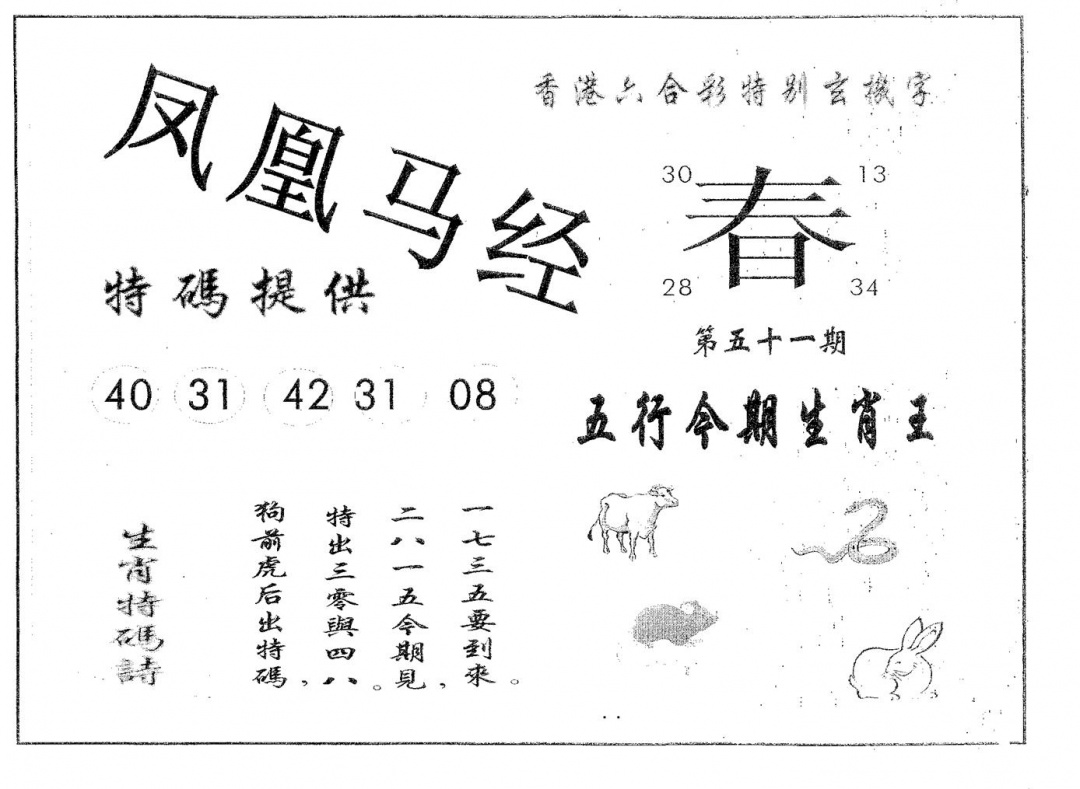 凤凰马经
香港六合彩特别玄機字
30 13
春
28 34
第五十一期
特碼提供
40 31 42 31 08
五行今期生肖王
生肖特碼詩
一七三五要到來。
二八一五今期見，
特出三零與四八。
狗前虎后出特碼，